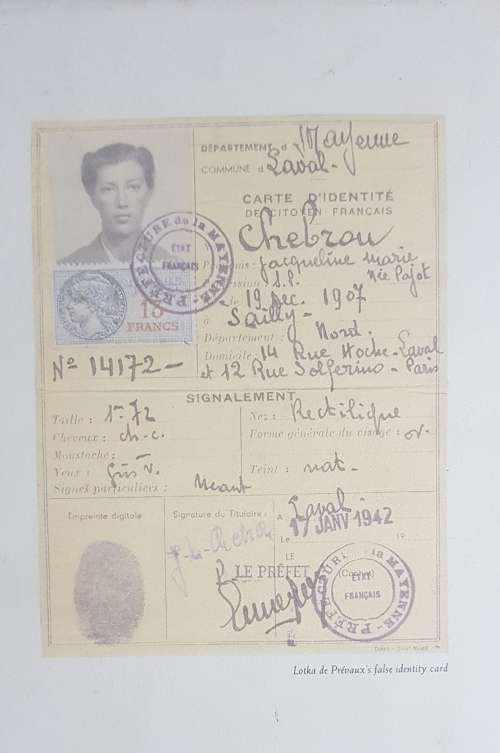 DÉPARTEMENT d Mayenne
COMMUNE d Laval-
CARTE D'IDENTITÉ
DE CITOYEN FRANÇAIS
Chebrou
Jacqueline Marie
née Pajot
S.P.
le 19 Dec. 1907
à Sailly-
Département : Nord.
Domicile: 14 Rue Hoche-Laval
et 12 Rue Solferino-Paris
PRÉFECTURE de la MAYENNE
ÉTAT
FRANÇAIS
15
FRANCS
Nº 14172-
SIGNALEMENT
Taille : 1m72
Cheveux : ch-c.
Moustache :
Yeux : gris v.
Signes particuliers : Néant
Nez : Rectilique
Forme générale du visage : ov.
Teint : nat-
Empreinte digitale
Signature du Titulaire :
A Laval
Le 17 JANV 1942 19
LE
P LE PRÉFET
(Cachet)
PRÉFECTURE de la MAYENNE
ÉTAT
FRANÇAIS
Lotka de Prévaux's false identity card